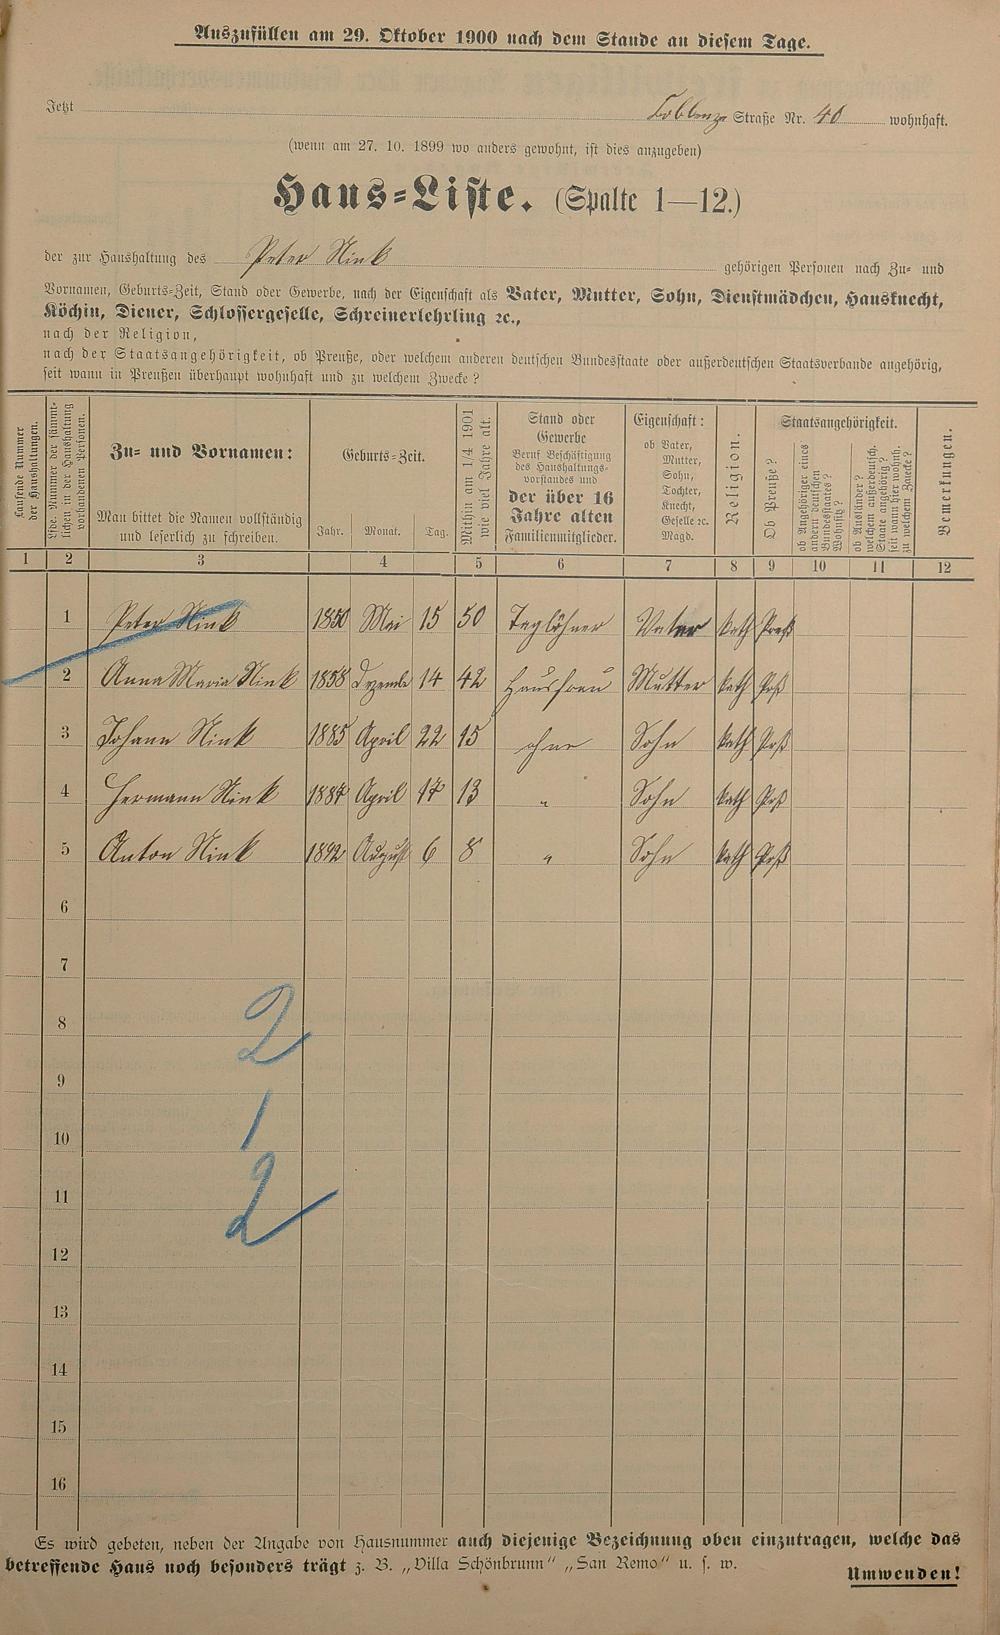 Auszufüllen am 29. Oktober 1900 nach dem Stande an diesem Tage.
Jetzt Coblenze Straße Nr. 40 wohnhaft.
(wenn am 27. 10. 1899 wo anders gewohnt, ist dies anzugeben)
Haus-Liste. (Spalte 1—12.)
der zur Haushaltung des Peter Nink gehörigen Personen nach Zu- und
Vornamen, Geburts-Zeit, Stand oder Gewerbe, nach der Eigenschaft als Vater, Mutter, Sohn, Dienstmädchen, Hausknecht,
Köchin, Diener, Schlossergeselle, Schreinerlehrling ꝛc.,
nach der Religion,
nach der Staatsangehörigkeit, ob Preuße, oder welchem anderen deutschen Bundesstaate oder außerdeutschen Staatsverbande angehörig,
seit wann in Preußen überhaupt wohnhaft und zu welchem Zwecke?
Laufende Nummer der Haushaltungen.
Lfde. Nummer der sämmtlichen in der Haushaltung vorhandenen Personen.
Zu- und Vornamen:
Man bittet die Namen vollständig
und leserlich zu schreiben.
Geburts-Zeit.
Jahr. Monat. Tag.
Mithin am 1/4 1901 wie viel Jahre alt.
Stand oder
Gewerbe
Beruf Beschäftigung
des Haushaltungs-
vorstandes und
der über 16
Jahre alten
Familienmitglieder.
Eigenschaft:
ob Vater,
Mutter,
Sohn,
Tochter,
Knecht,
Geselle ꝛc.
Magd.
Religion.
Staatsangehörigkeit.
Ob Preuße?
ob Angehöriger eines andern deutschen Bundesstaates? Wohnsitz?
ob Ausländer? welchem außerdeutsch. Staate angehörig? seit wann hier wohnh. zu welchem Zwecke?
Bemerkungen.
1 2 3 4 5 6 7 8 9 10 11 12
1 Peter Nink 1850 Mai 15 50 Taglöhner Vater kath Preß
2 Anna Maria Nink 1858 Dezembe 14 42 Hausfrau Mutter kath Prß
3 Johann Nink 1885 April 22 15 ohne Sohn kath Prß
4 Hermann Nink 1887 April 17 13 " Sohn kath Prß
5 Anton Nink 1892 August 6 8 " Sohn kath Prß
6
7
8
2
9
10
1
11
2
12
13
14
15
16
Es wird gebeten, neben der Angabe von Hausnummer auch diejenige Bezeichnung oben einzutragen, welche das
betreffende Haus noch besonders trägt z. B. „Villa Schönbrunn" „San Remo" u. s. w.
Umwenden!